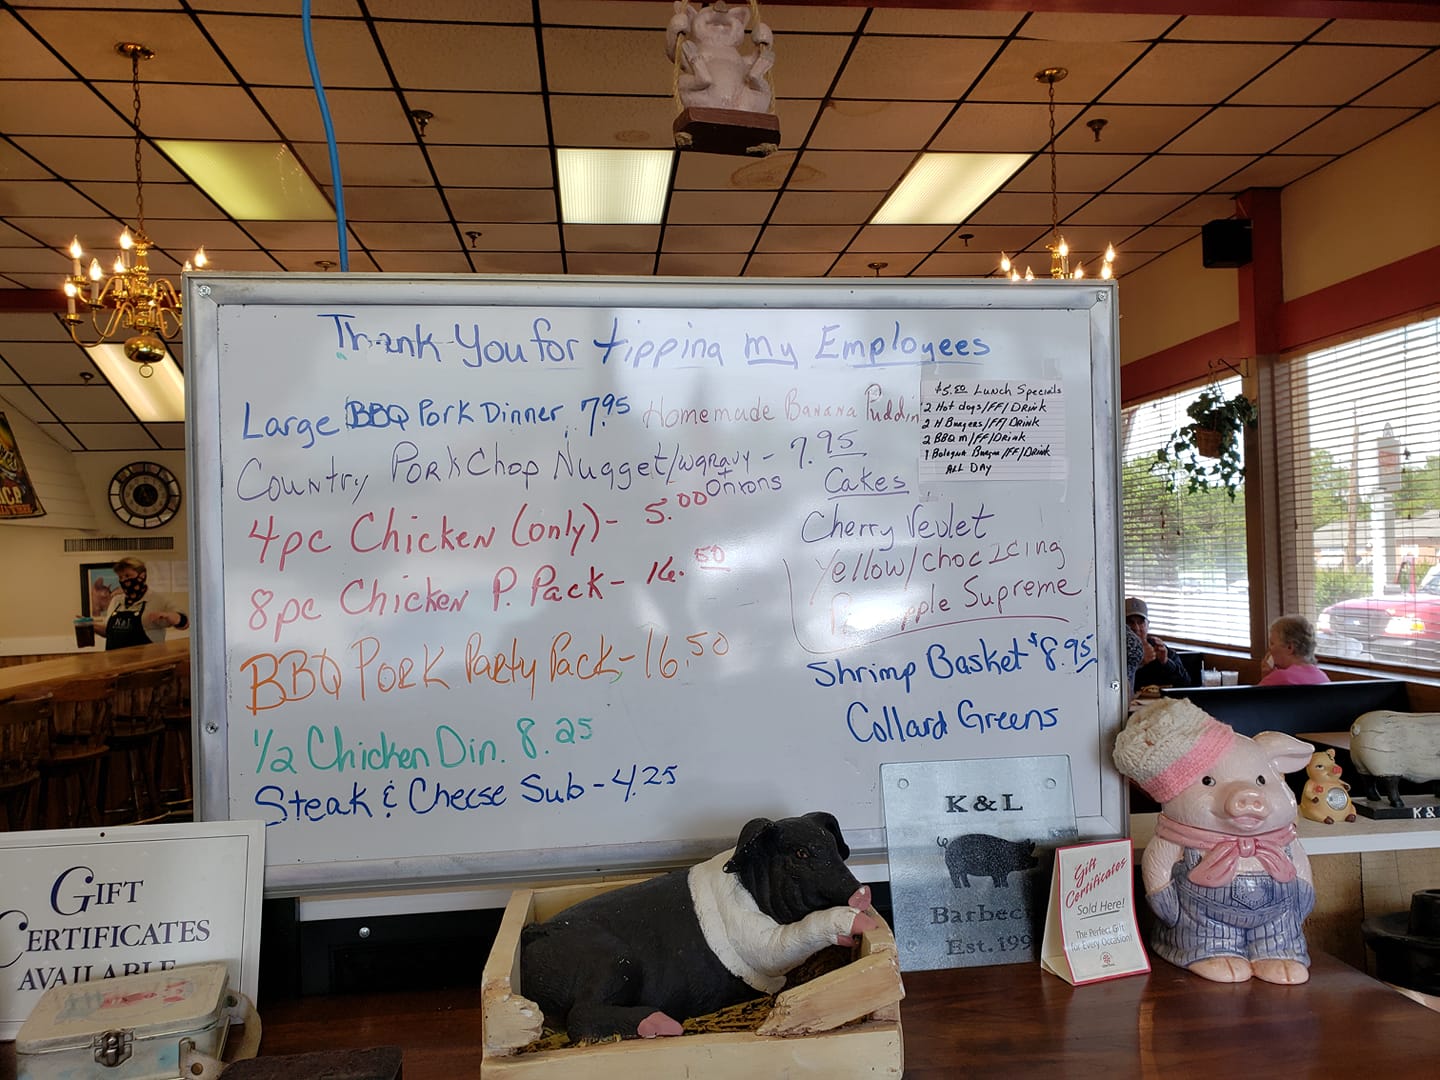 Thank You for tipping my Employees
Large BBQ Pork Dinner 7.95
Homemade Banana Puddin
Country Pork Chop Nugget/wgravy - 7.95
+ onions
4pc Chicken (only) - 5.00
8pc Chicken P. Pack - 16.50
BBQ Pork Party Pack - 16.50
1/2 Chicken Din. 8.25
Steak & Cheese Sub - 4.25
$5.50 Lunch Specials
2 Hot dogs/FF/Drink
2 H Burgers/FF/Drink
2 BBQ m/FF/Drink
1 Bologna Burger/FF/Drink
All Day
Cakes
Cherry Vevlet
Yellow/choc Icing
Pineapple Supreme
Shrimp Basket $8.95
Collard Greens
GIFT
CERTIFICATES
AVAILABLE
K&L
Barbec
Est. 199
Gift
Certificates
Sold Here!
The Perfect Gift
for Every Occasion!
K&L
K&